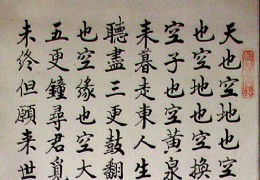 天也空地也空
也空地也空換
空子也空黃泉
来暮走東人生
聽盡三更鼓翻
也空緣也空大
五更鐘尋君覓
未終但願来世